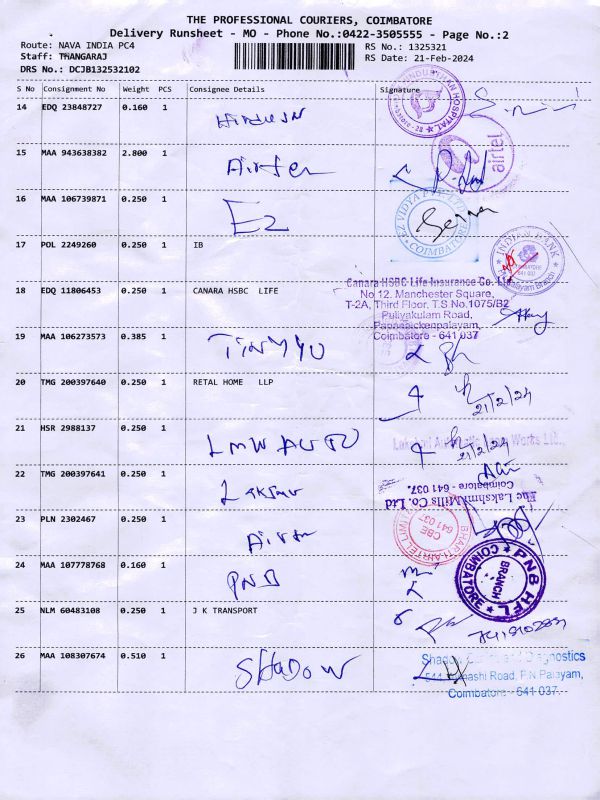 THE PROFESSIONAL COURIERS, COIMBATORE
Delivery Runsheet - MO - Phone No.:0422-3505555 - Page No.:2
Route: NAVA INDIA PC4 RS No.: 1325321
Staff: THANGARAJ RS Date: 21-Feb-2024
DRS No.: DCJB132532102
S No Consignment No Weight PCS Consignee Details Signature
14 EDQ 23848727 0.160 1
15 MAA 943638382 2.800 1 Airtel
airtel
16 MAA 106739871 0.250 1 EZ
EZ VIDYA PVT. LTD.
COIMBATORE
17 POL 2249260 0.250 1 IB
INDIAN BANK
COIMBATORE
641 037
18 EDQ 11806453 0.250 1 CANARA HSBC LIFE
Canara HSBC Life Insurance Co. Ltd
No 12, Manchester Square,
T-2A, Third Floor, T.S No.1075/B2
Puliyakulam Road,
Papanaickenpalayam,
Coimbatore - 641 037
19 MAA 106273573 0.385 1
20 TMG 200397640 0.250 1 RETAL HOME LLP
21/2/24
21 HSR 2988137 0.250 1 LMW
21/2/24
22 TMG 200397641 0.250 1
The Lakshmi Mills Co. Ltd
Coimbatore - 641 037.
23 PLN 2302467 0.250 1
BHARTI AIRTEL LIMITED
CBE
641 037
24 MAA 107778768 0.160 1 PNB
PNB HFL
BRANCH
COIMBATORE
25 NLM 60483108 0.250 1 J K TRANSPORT
26 MAA 108307674 0.510 1 SHADOW
Diagnostics
Road, P.N Palayam,
Coimbatore - 641 037.